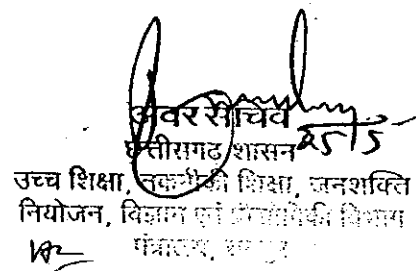 अवर सचिव
छत्तीसगढ़ शासन 25/5
उच्च शिक्षा, तकनीकी शिक्षा, जनशक्ति
नियोजन, विज्ञान एवं प्रौद्योगिकी विभाग
मंत्रालय,